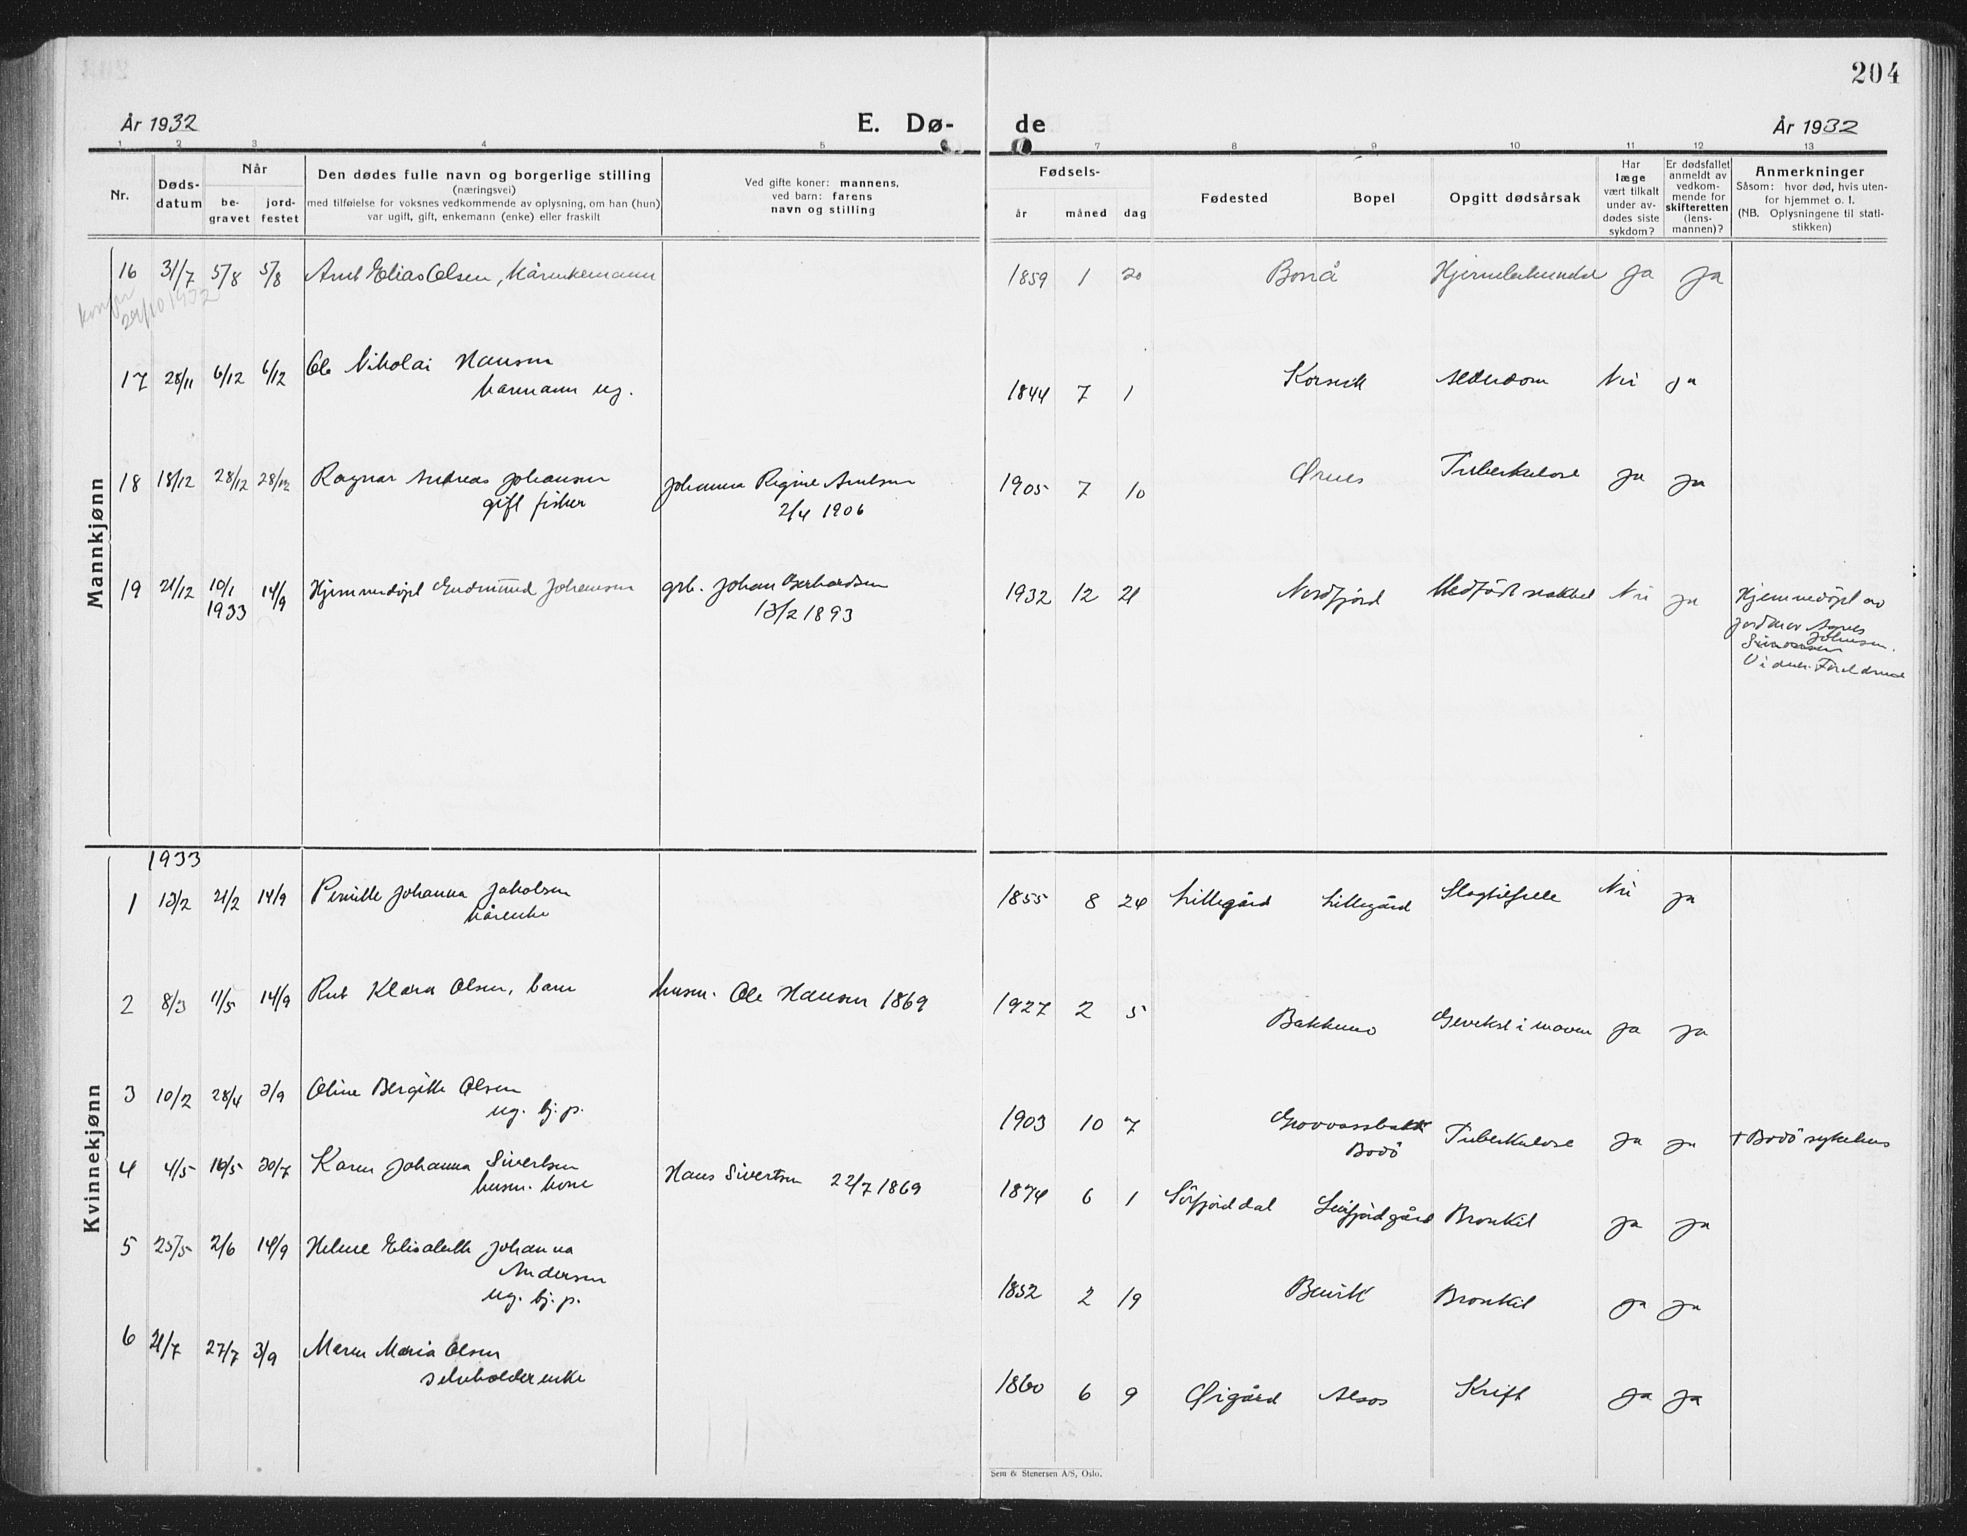 204
År 1932
E. Dø-
de
År 1932
1 2 3 4 5 7 8 9 10 11 12 13
Nr.
Døds-
datum
Når
be-
gravet
jord-
festet
Den dødes fulle navn og borgerlige stilling
(næringsvei)
med tilføielse for voksnes vedkommende av oplysning, om han (hun)
var ugift, gift, enkemann (enke) eller fraskilt
Ved gifte koner: mannens,
ved barn: farens
navn og stilling
Fødsels-
år måned dag
Fødested
Bopel
Opgitt dødsårsak
Har
læge
vært tilkalt
under av-
dødes siste
sykdom?
Er dødsfallet
anmeldt av
vedkom-
mende for
skifteretten
(lens-
mannen)?
Anmerkninger
Såsom: hvor død, hvis uten-
for hjemmet o. l.
(NB. Oplysningene til stati-
stikken)
Mannkjønn
16 31/7 5/8 5/8 Arnt Elias Olsen, kårenkemann 1859 1 20 Ja Ja
29/10 1932
17 28/11 6/12 6/12 Ole Nikolai Hansen 1844 7 1 Korsvik Alderdom Nei ja
kårmann ug.
18 18/12 28/12 28/12 Ragnar Andreas Johansen Johanna Regine Arntsen 1905 7 10 Ørnes Tuberkulose ja ja
gift fisker 2/4 1906
19 21/12 10/1 14/9 Hjemmedøpt Gudmund Johansen grb. Johan Gerhardsen 1932 12 21 Nordfjord Medfødt svakhet Nei ja Hjemmedøpt av
1933 13/2 1893 jordmor Agnes
Johnsen.
Kvinnekjønn
1933
1 13/2 21/2 14/9 Pernille Johanna Jakobsen 1855 8 24 Lillegård Lillegård Slagtilfelle Nei ja
kårenke
2 8/3 11/5 14/9 Rut Klara Olsen, barn husm. Ole Hansen 1869 1927 2 5 i maven ja ja
3 10/2 28/4 3/9 Oline Bergitte Olsen 1903 10 7 Tuberkulose ja ja + Bodö sykehus
ug. hj. p. Bodö
4 4/5 16/5 30/7 Karen Johanna Sivertsen Hans Sivertsen 22/7 1869 1874 6 1 Sörfjorddal Bronkit ja ja
husm. kone
5 25/5 2/6 14/9 Helene Elisabeth Johanna 1852 2 19 Bronkit ja ja
Andersen
ug. hj. p.
6 21/7 27/7 3/9 Maren Maria Olsen 1860 6 9 Øigård Alsos Kreft ja ja
selveholderenke
Sem & Stenersen A/S, Oslo.